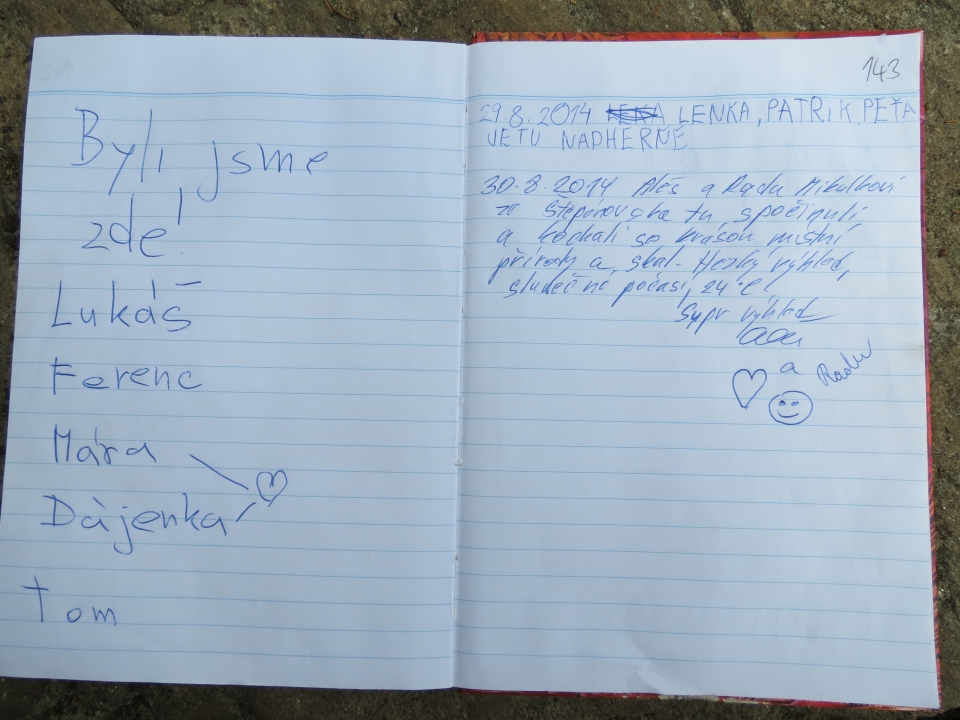 Byli jsme
zde!
Lukáš
Ferenc
Mára
Dájenka
Tom
143
29.8.2014 LENKA, PATRIK, PEŤA
JE TU NADHERNĚ
30.8.2014 Aleš a Radu Mikulkovi
ze Štěpánovska tu spočinuli
a kochali se krásou místní
přírody a skal. Hezký výhled,
slunečné počasí, 24°C!
Supr výhled
a
Radu